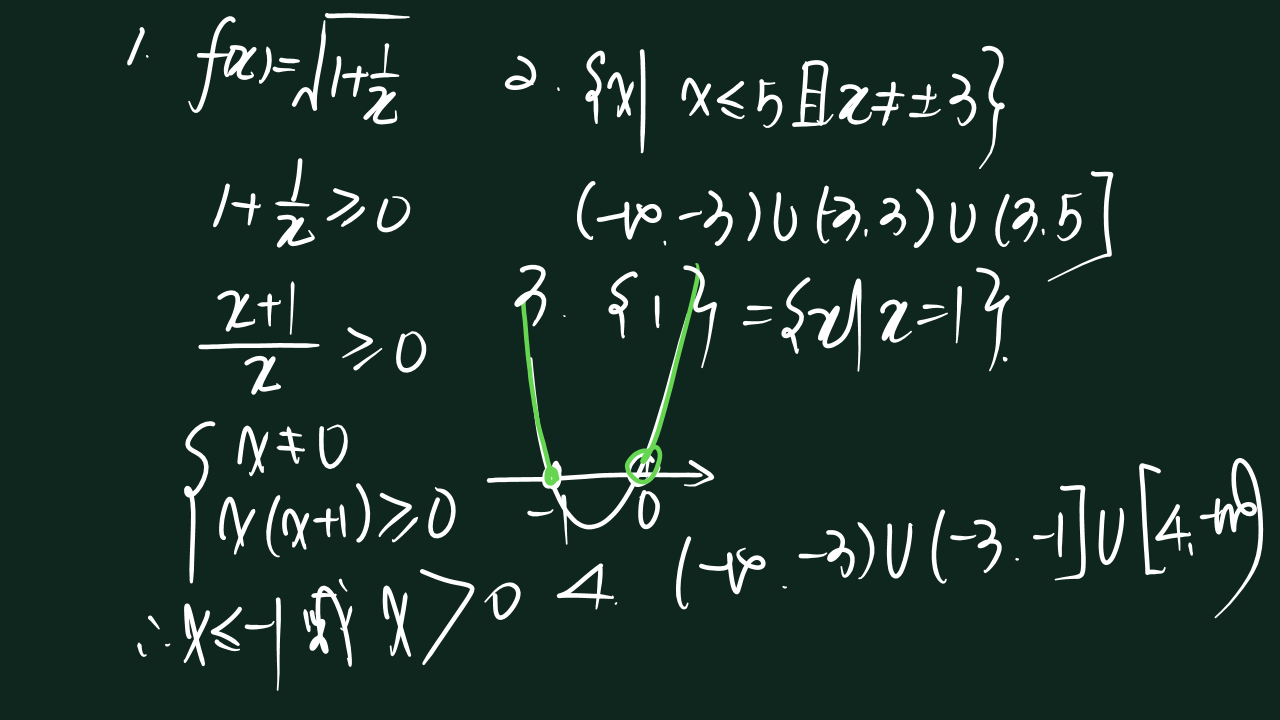 1. f(x)=√(1+1/x)
1+1/x≥0
(x+1)/x≥0
{x≠0
x(x+1)≥0
∴x≤-1或x>0
2. {x|x≤5且x≠±3}
(-∞.-3)∪(-3.3)∪(3.5]
3. {1}={x|x=1}.
-1 0
4. (-∞.-3)∪(-3.-1]∪[4,+∞)